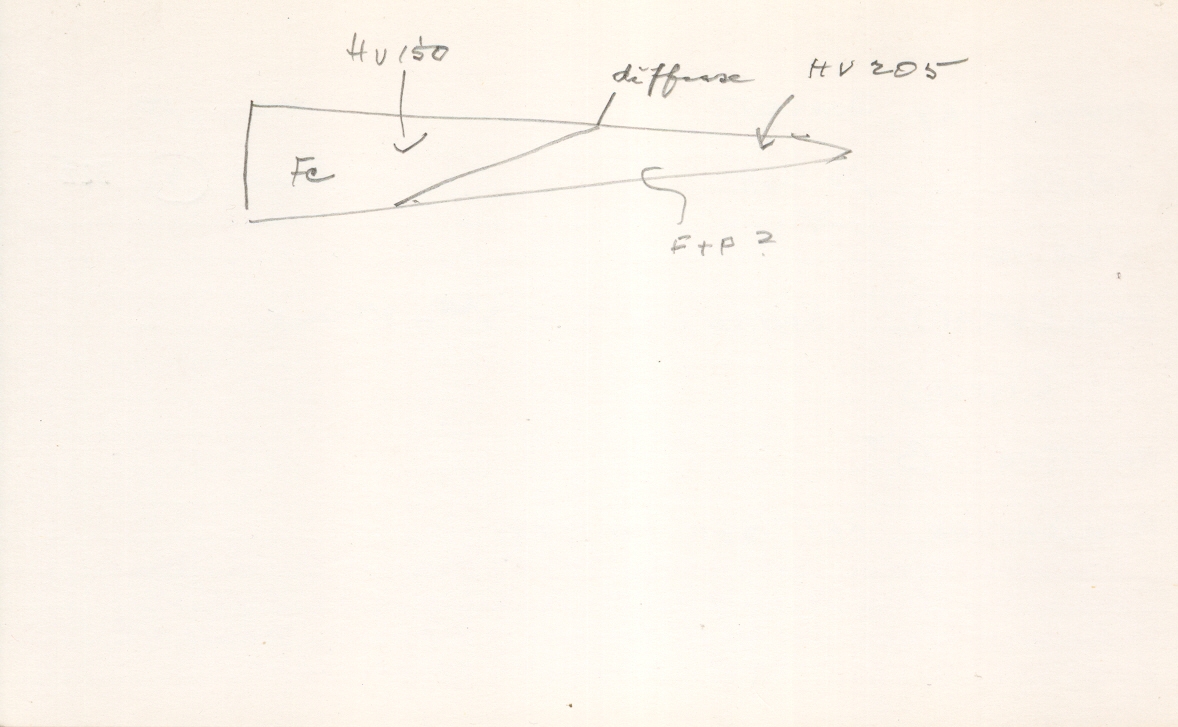 HV 150
diffuse
HV 205
Fe
F+P ?